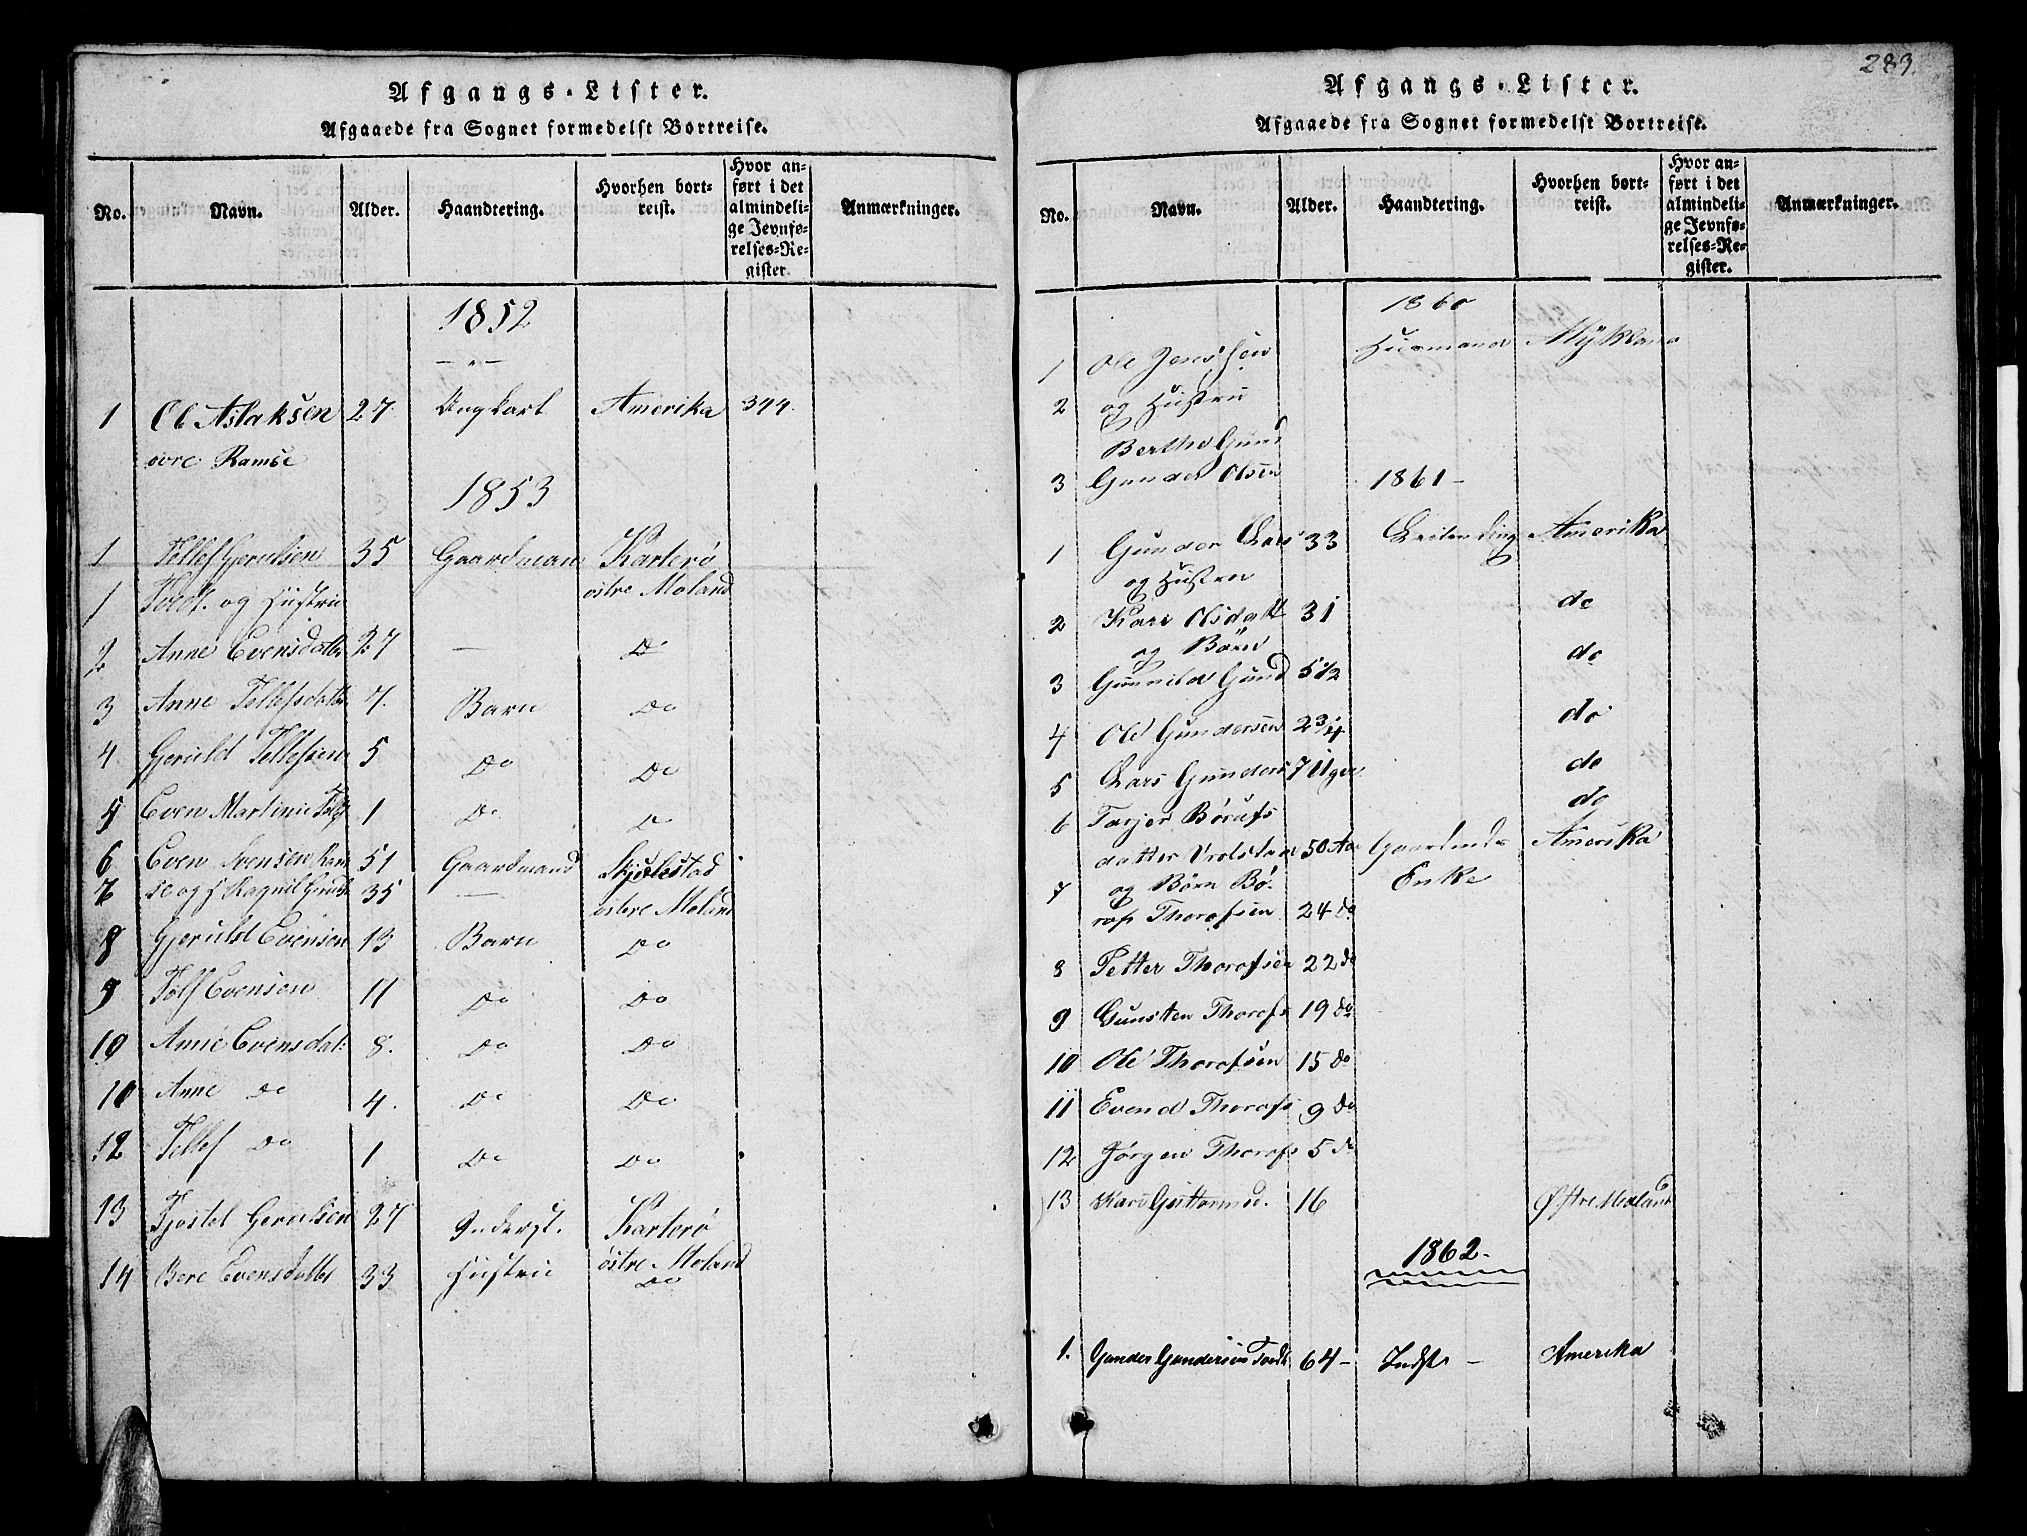 Afgangs-Lister.
Afgaaede fra Sognet formedelst Bortreise.
No. Navn. Alder. Haandtering. Hvorhen bortreist. Hvor anført i det almindelige Jevnførelses-Register. Anmærkninger.
1852
1 Ole Aslaksen 27 Ungkarl Amerika 344.
øvre Ramse
1853
1 Tellef Gerulsen 35 Gaardmand Karterø
1 Tvedt. og Hustru østre Moland
2 Anne Evensdatter 27 — Do
3 Anne Tellefsdatter 7. Barn Do
4 Gjeruld Tellefsen 5 Do Do
5 Even Martinus Tellefs 1 Do Do
6 Even Evensen Ram 51 Gaardmand Skjulestad
7 se og h Ragnil Geruls 35 — østre Moland
8 Gjeruld Evensen 13 Barn Do
9 Tolf Evensen 11 Do Do
10 Anne Evensdat: 8. Do Do
10 Anne do 4. Do Do
12 Tellef Do 1 Do Do
13 Kjøstel Gerulsen 27 Inderst. Karterø
østre Moland
14 Bere Evensdatter 33 Hustru Do
283.
Afgangs-Lister.
Afgaaede fra Sognet formedelst Bortreise.
No. Navn. Alder. Haandtering. Hvorhen bortreist. Hvor anført i det almindelige Jevnførelses-Register. Anmærkninger.
1860
1 Ole Jenssøn Husmand Mykland
2 og Hustru
Berthe Gund
3 Gunder Olsen
1861 —
1 Gunder Lars 33 Amerika
og Hustru
2 Kari Olsdatt 31 do
og Børn
3 Gunnild Gund 5 1/2 do
4 Ole Gundersen 2 3/4 do
5 Lars Gunders 7 Uger do
6 Tarjer Børufs do
datter 50 Aar Gaardmands Amerika
7 og Børn Bø- Enke
rof Thorofsen 24 do
8 Petter Thorofsen 22 do
9 Gunsten Thorofs 19 do
10 Ole Thorofsen 15 do
11 Evend Thorofs 9 do
12 Jørgen Thorofs 5 do
13 Kari Guttormsd. 16 Østre Moland
1862.
1. Gunder Gundersen Tvedt 64 — Indst — Amerika